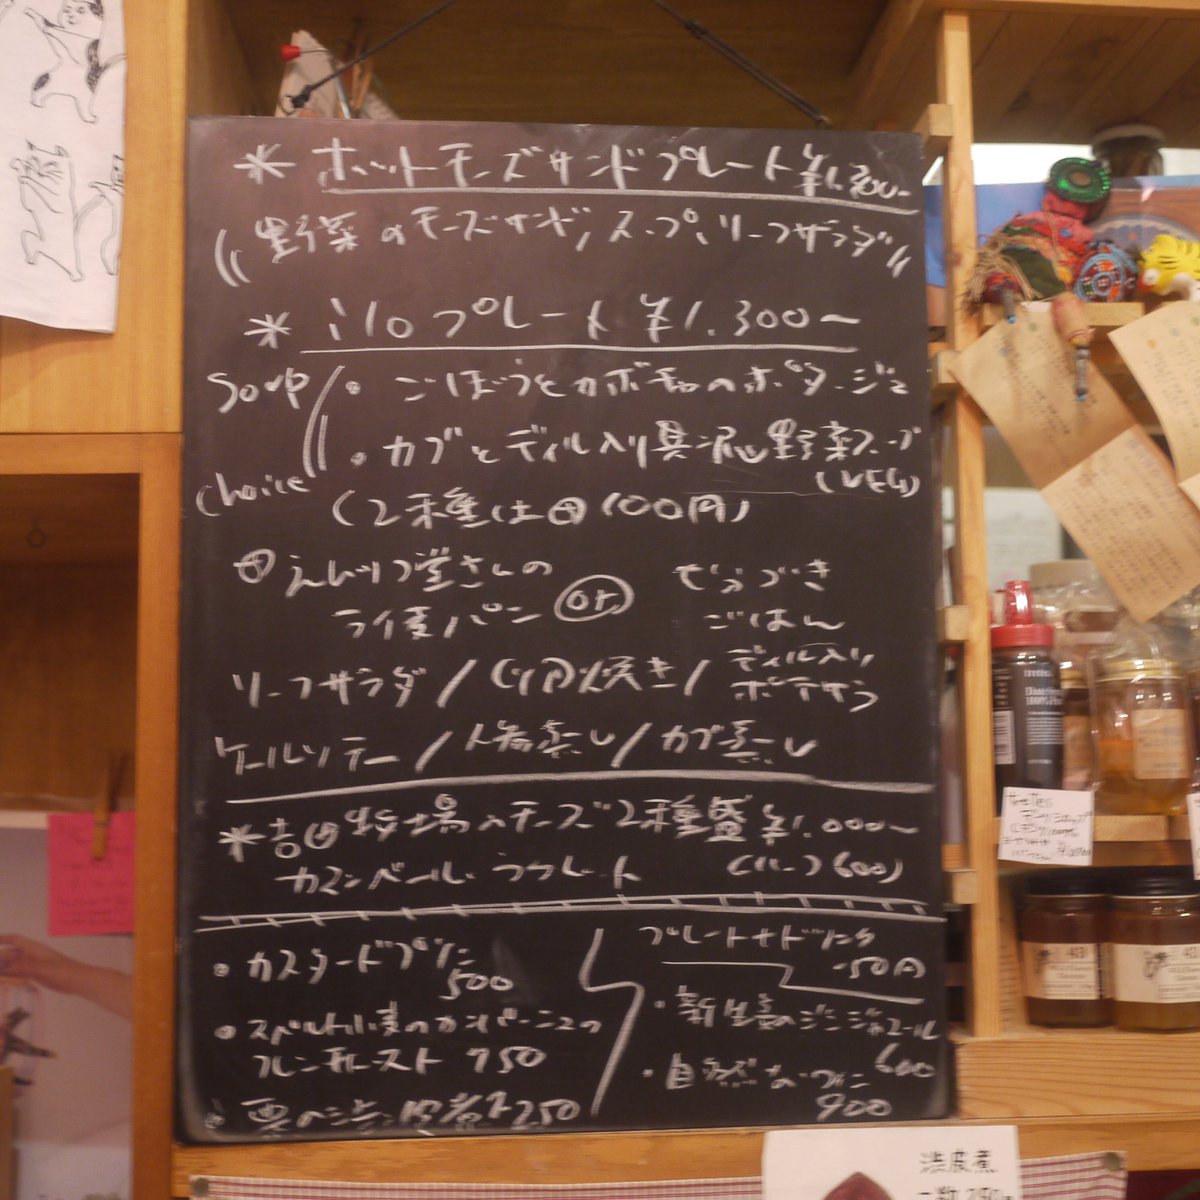 * ホットチーズサンドプレート ¥1,300-
(野菜のチーズサンド、スープ、リーフサラダ)
* iloプレート ¥1,300~
Soup
・ごぼうとカボチャのポタージュ
choice
・カブとディル入り具沢山野菜スープ
(VEG)
(2種は⊕100円)
⊕ えんツコ堂さんの
ライ麦パン
or
七分づき
ごはん
リーフサラダ / 卵焼き / ディル入り
ポテサラ
ケールソテー / 人参蒸し / カブ蒸し
* 吉田牧場のチーズ2種盛 ¥1,000~
カマンベール、ラクレット (ハーフ600)
・カスタードプリン
500
・スペルト小麦のカンパーニュの
フレンチトースト 750
・栗の渋皮煮 250
プレート+ドリンク
-50円
・新生姜のジンジャエール
600
・自然派
900
渋皮煮